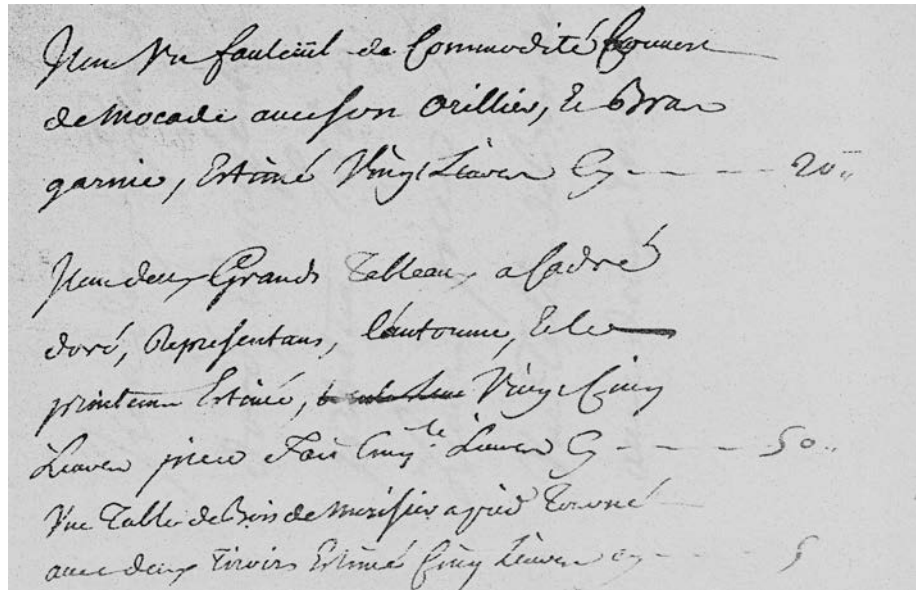 Item Un fauteüil de Commodité Couvert
de mocade avec son orillier, le Bras
garnie, Estimé Vingt Livres Cy - - - - 20"
Item deux Grands Tableaux a Cadre
doré, Representans, l'autonne, Et le
printems Estimé, Vingt Cinq
Livres piece Fait Cinq.te Livres Cy - - - - 50"
Une Table de Bois de merisier a pied Tourné
avec deux Tiroirs Estimé Cinq Livres cy - - - - 5